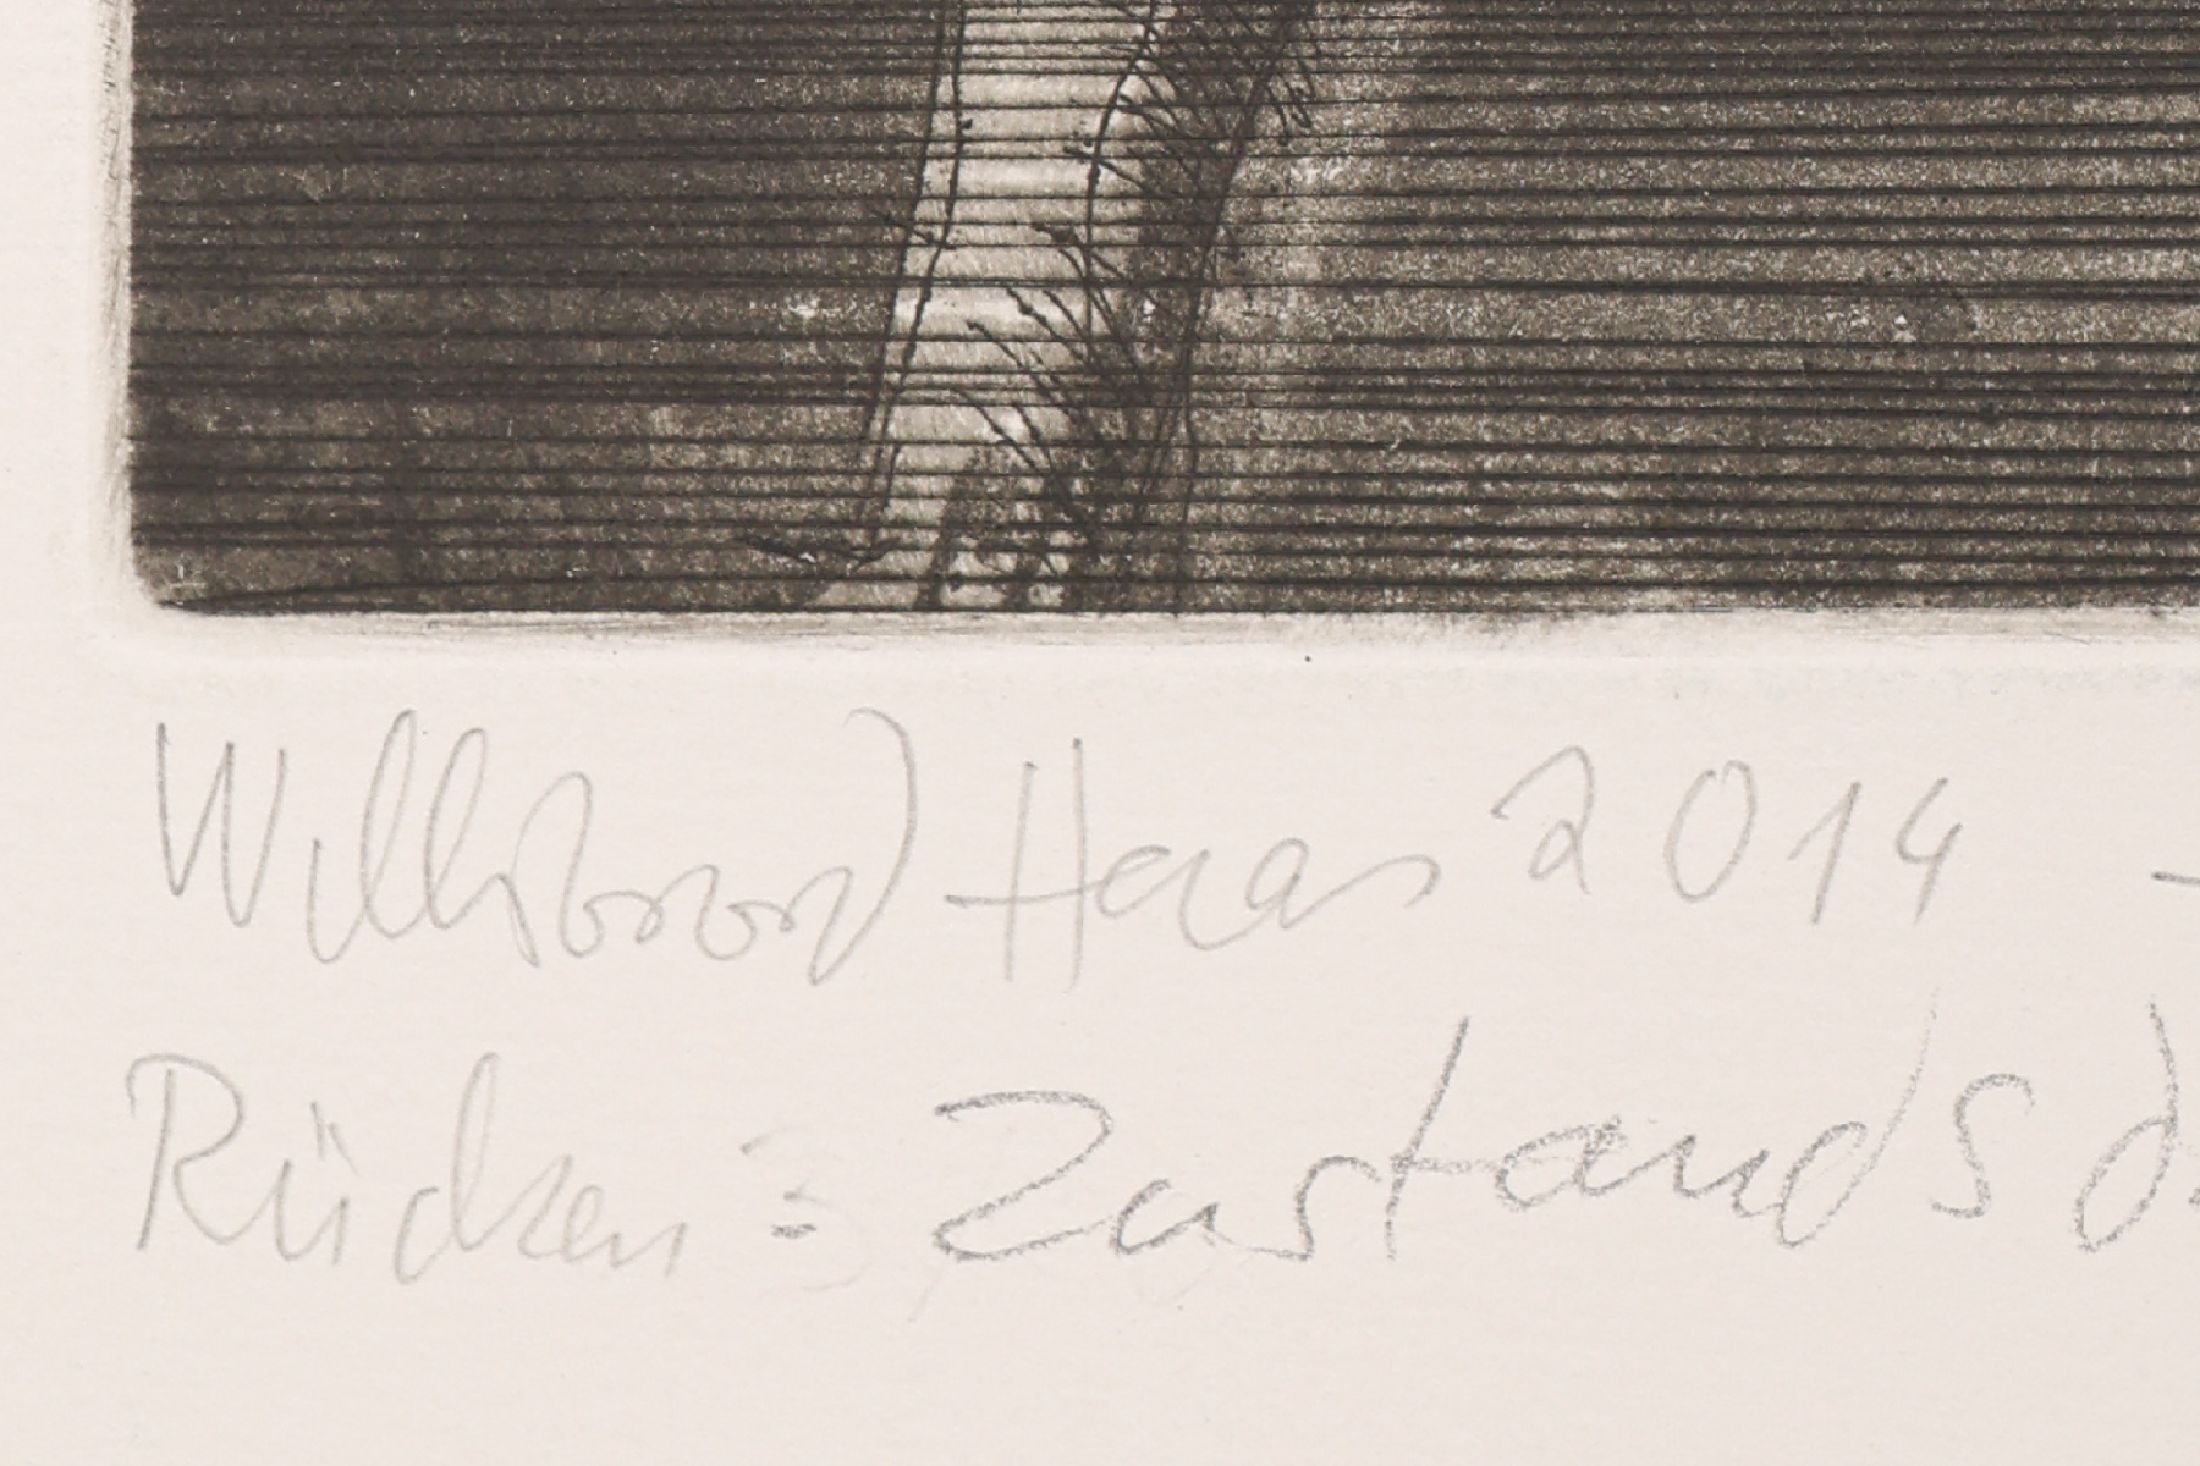 Willibrord Haas 2014 -
Rücken : Zustands d